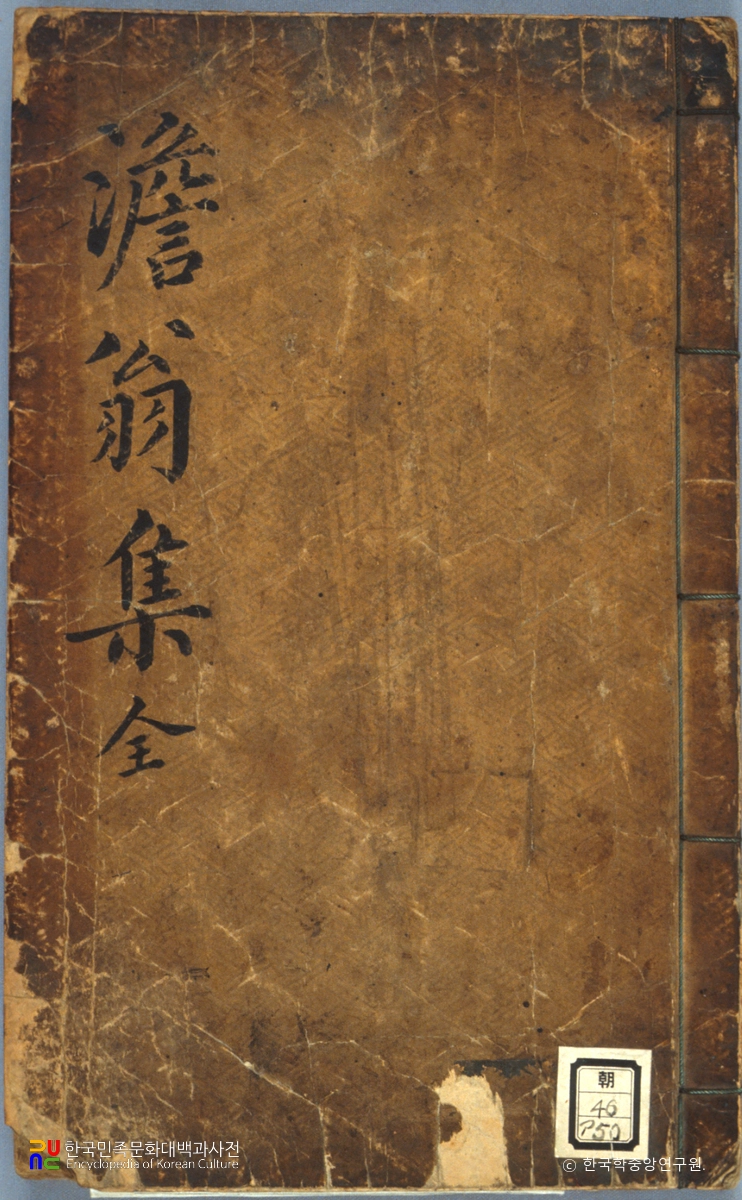 澹翁集全
朝
46
P50
한국민족문화대백과사전
Encyclopedia of Korean Culture
© 한국학중앙연구원.